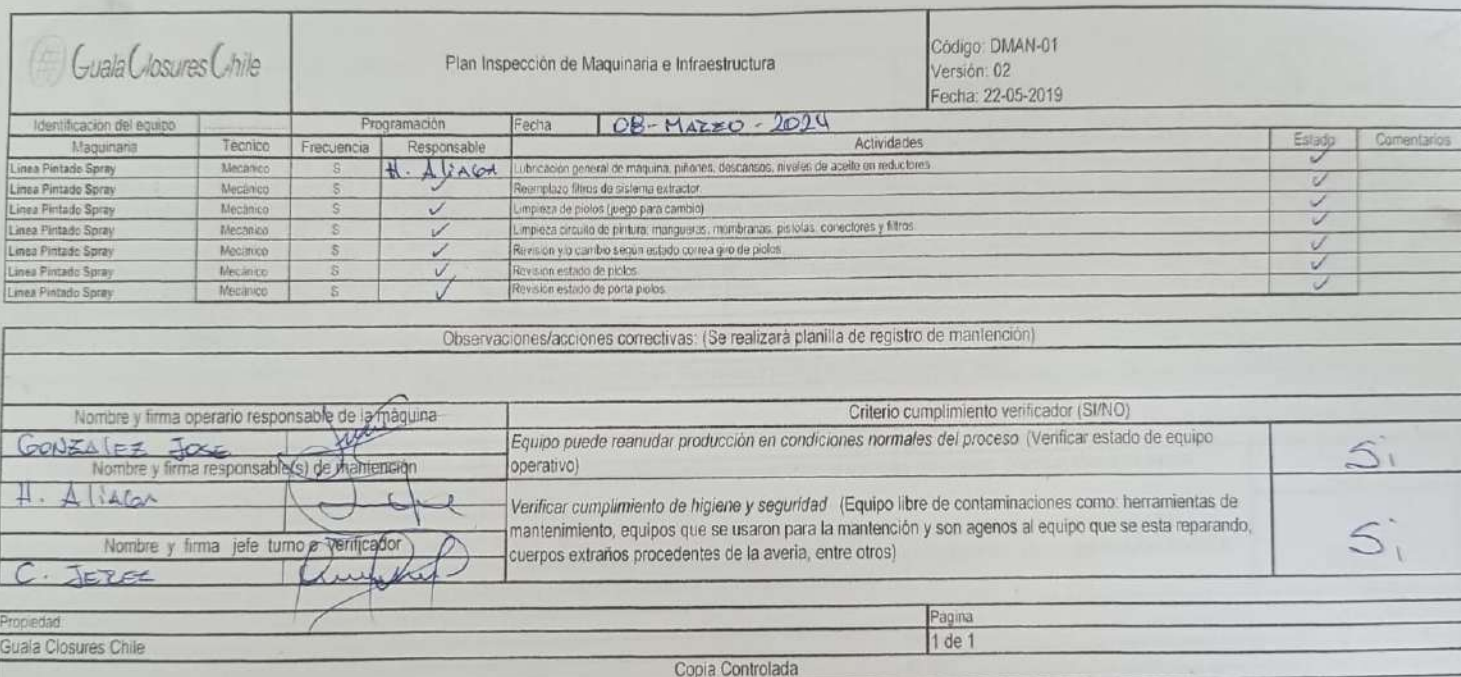 Guala Closures Chile
Plan Inspección de Maquinaria e Infraestructura
Código: DMAN-01
Versión: 02
Fecha: 22-05-2019
Identificación del equipo Programación Fecha 08-MARZO-2024
Maquinaria Técnico Frecuencia Responsable Actividades Estado Comentarios
Linea Pintado Spray Mecánico S H. Aliaga Lubricación general de maquina, piñones, descansos, niveles de aceite en reductores ✓
Linea Pintado Spray Mecánico S ✓ Reemplazo filtros de sistema extractor ✓
Linea Pintado Spray Mecánico S ✓ Limpieza de piolos (juego para cambio) ✓
Linea Pintado Spray Mecánico S ✓ Limpieza circuito de pintura, mangueras, membranas, pistolas, conectores y filtros ✓
Linea Pintado Spray Mecánico S ✓ Revisión y/o cambio según estado correa giro de piolos ✓
Linea Pintado Spray Mecánico S ✓ Revisión estado de piolos ✓
Linea Pintado Spray Mecánico S ✓ Revisión estado de porta piolos ✓
Observaciones/acciones correctivas: (Se realizará planilla de registro de mantención)
Nombre y firma operario responsable de la máquina
GONZALEZ JOSE
Nombre y firma responsable(s) de mantención
H. Aliaga
Nombre y firma jefe turno o verificador
C. JEREZ
Criterio cumplimiento verificador (SI/NO)
Equipo puede reanudar producción en condiciones normales del proceso (Verificar estado de equipo
operativo)
Si
Verificar cumplimiento de higiene y seguridad (Equipo libre de contaminaciones como: herramientas de
mantenimiento, equipos que se usaron para la mantención y son agenos al equipo que se esta reparando,
cuerpos extraños procedentes de la averia, entre otros)
Si
Propiedad
Guala Closures Chile
Pagina
1 de 1
Copia Controlada